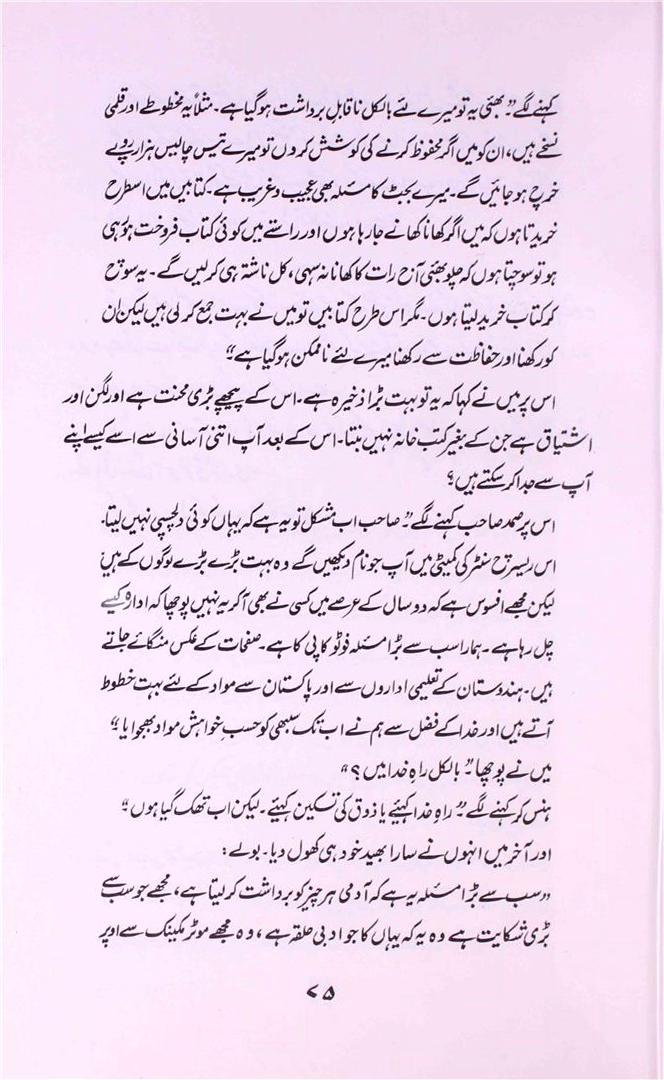 کہنے لگے” بھئی یہ تو میرے لئے بالکل ناقابلِ برداشت ہو گیا ہے۔ مثلاً یہ مخطوطے اور قلمی
نسخے ہیں، ان کو میں اگر محفوظ کرنے کی کوشش کروں تو میرے تیس چالیس ہزار روپے
خرچ ہو جائیں گے۔ میرے بجٹ کا مسئلہ بھی عجیب و غریب ہے۔ کتابیں میں اسطرح
خریدتا ہوں کہ میں اگر کھانا کھانے جا رہا ہوں اور راستے میں کوئی کتاب فروخت ہو رہی
ہو تو سوچتا ہوں کہ چلو بھئی آج رات کا کھانا نہ سہی، کل ناشتہ ہی کر لیں گے۔ یہ سوچ
کر کتاب خرید لیتا ہوں۔ مگر اس طرح کتابیں تو میں نے بہت جمع کر لی ہیں لیکن ان
کو رکھنا اور حفاظت سے رکھنا میرے لئے ناممکن ہو گیا ہے“
اس پر میں نے کہا کہ یہ تو بہت بڑا ذخیرہ ہے۔ اس کے پیچھے بڑی محنت ہے اور لگن اور
اشتیاق ہے جن کے بغیر کتب خانہ نہیں بنتا۔ اس کے بعد آپ اتنی آسانی سے اسے کیسے اپنے
آپ سے جدا کر سکتے ہیں؟
اس پر صمد صاحب کہنے لگے” صاحب اب مشکل تو یہ ہے کہ یہاں کوئی دلچسپی نہیں لیتا۔
اس ریسرچ سنٹر کی کمیٹی میں آپ جو نام دیکھیں گے وہ بہت بڑے بڑے لوگوں کے ہیں
لیکن مجھے افسوس ہے کہ دو سال کے عرصے میں کسی نے بھی آ کر یہ نہیں پوچھا کہ ادارہ کیسے
چل رہا ہے۔ ہمارا سب سے بڑا مسئلہ فوٹو کاپی کا ہے۔ صفحات کے عکس منگائے جاتے
ہیں۔ ہندوستان کے تعلیمی اداروں سے اور پاکستان سے مواد کے لئے بہت خطوط
آتے ہیں اور خدا کے فضل سے ہم نے اب تک سبھی کو حسبِ خواہش مواد بھجوایا“
میں نے پوچھا” بالکل راہِ خدا میں؟“
ہنس کر کہنے لگے” راہِ خدا کہیئے یا ذوق کی تسکین کہیئے۔ لیکن اب تھک گیا ہوں“
اور آخر میں انہوں نے سارا بھید خود ہی کھول دیا۔ بولے:
”سب سے بڑا مسئلہ یہ ہے کہ آدمی ہر چیز کو برداشت کر لیتا ہے، مجھے جو سب سے
بڑی شکایت ہے وہ یہ کہ یہاں کا جو ادبی حلقہ ہے، وہ مجھے موٹر مکینک سے اوپر
۷۵